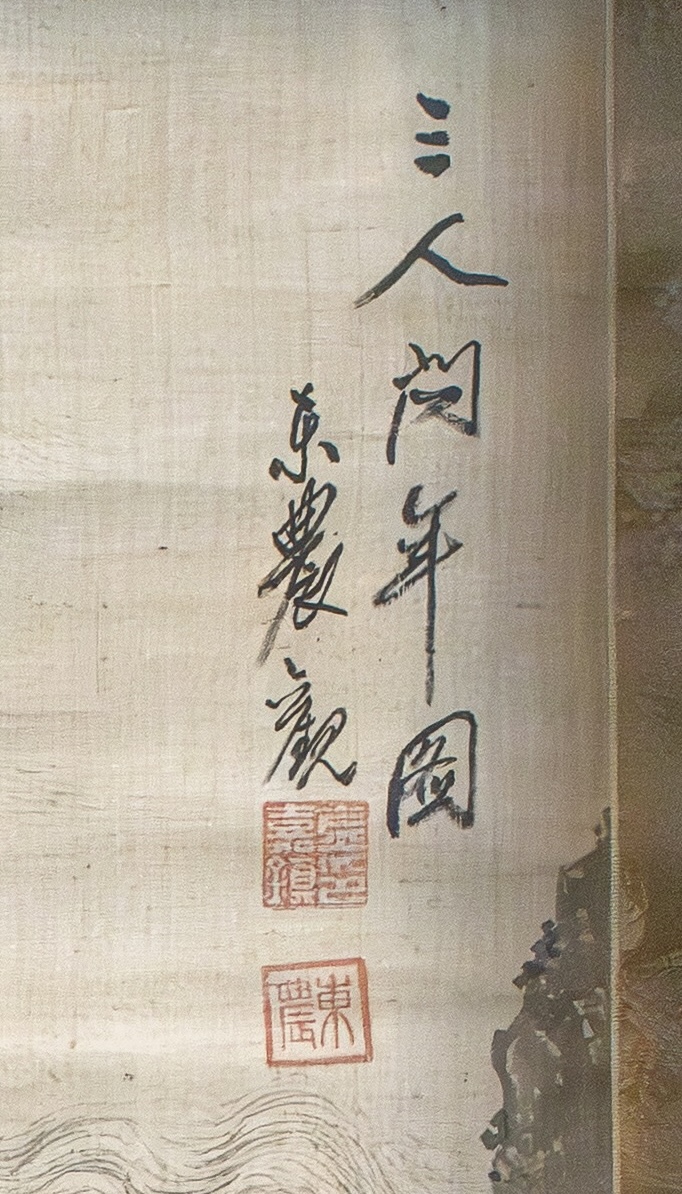 三人問年圖
東農觀
東農